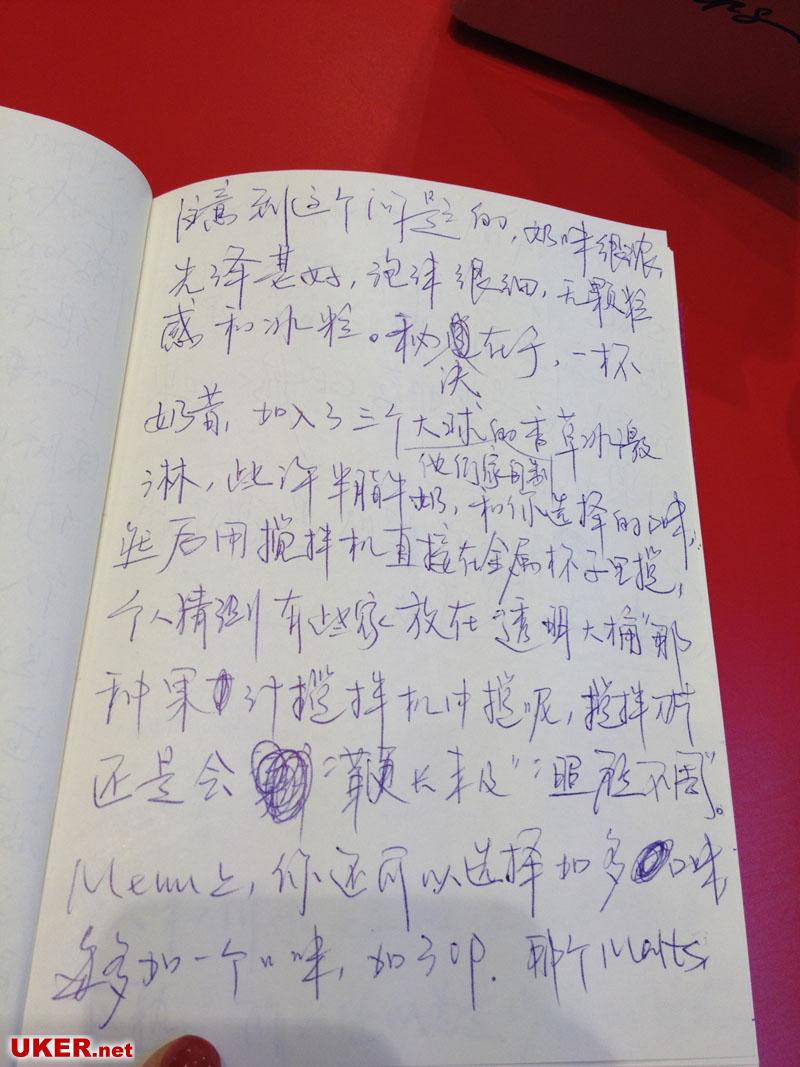 注意到这个问题的,奶味很浓,
光泽甚好,泡沫很细,无颗粒
感和冰粒。秘诀在于,一杯
奶昔,加入了三个大球的香草冰激
他们家自制
淋,些许半脂牛奶,和你选择的口味,
然后用搅拌机直接在金属杯子里搅,
个人猜测有些家放在"透明大桶"那
种果汁搅拌机中搅呢,搅拌片
还是会"鞭长未及""照顾不周"。
Menu上,你还可以选择加多口味,
每多加一个口味,加30p.那个Malts,
UKER.net